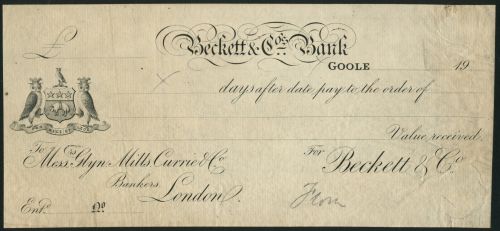 £ Beckett & Cos. Bank
GOOLE 19
days after date pay to the order of
Value received
To Messrs. Glyn Mills Currie & Co. For Beckett & Co.
Bankers
London.
Entd. No